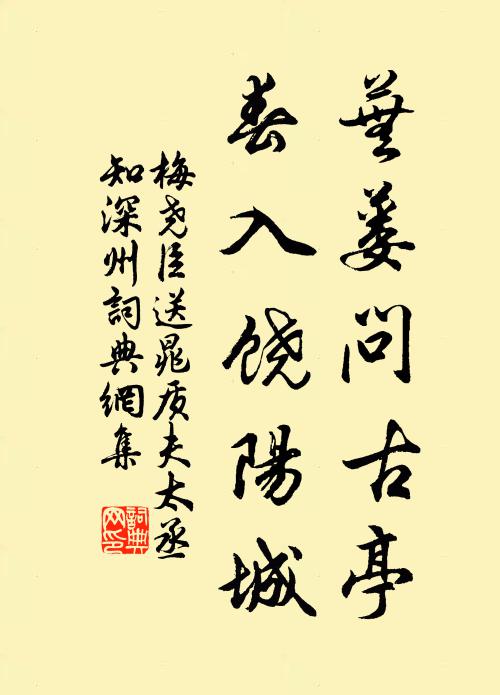 蕪蒌問古亭
春入饶陽城
梅尧臣送晁质夫太丞
知深州詞典網集
詞典
网印